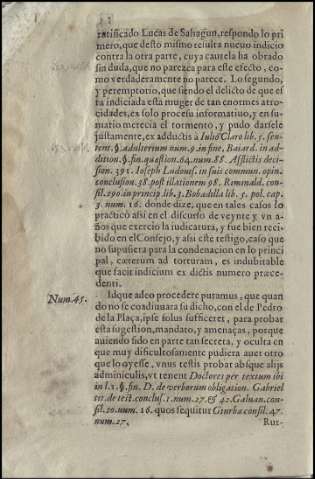 ratificado Lucas de Sahagun, respondo lo pri
mero, que desto mismo resulta nueuo indicio
contra la otra parte, cuya cautela ha obrado
sin duda, que no parezca para este efecto, co-
mo verdaderamente no parece. Lo segundo,
y peremptorio, que siendo el delicto de que es
ta indiciada esta muger de tan enormes atro-
cidades, ex solo processu informatiuo, y en su-
mario merecia el tormento, y pudo darsele
justamente, ex adductis à Iulio Claro lib. 5. sen-
tent. §. adulterium num. 9. in fine, Baiard. in ad-
dition. §. fin. quæstion. 64. num. 88. Afflictis deci-
sion. 391. Ioseph Ludouis. in suis commun. opin.
conclusion. 38. post illationem 98. Riminald. con-
sil. 290. in princip. lib. 3. Bobadilla lib. 5. pol. cap.
3. num. 16. donde dize, que en tales casos lo
practicò asi en el discurso de veynte y vn a-
ños que exercio la iudicatura, y fue bien reci-
bido en el Consejo, y asi este testigo, caso que
no se supusiera para la condenacion en lo princi
pal, cæterum ad torturam, es indubitable
que facit indicium ex dictis numero præce-
denti.
Num. 45. Idque adeo procedere putamus, que quan
do no se coadiuuara su dicho, con el de Pedro
de la Plaça, ipse solus sufficeret, para probar
esta sugestion, mandato, y amenaças, porque
auiendo sido en parte tan secreta, y oculta en
que muy dificultosamente pudiera auer otro
que lo oyesse, vnus testis probat absque alijs
adminiculis, vt tenent Doctores per textum ibi
in l. 1. §. fin. D. de verborum obligation. Gabriel
tit. de test. conclus. 1. num. 27. & 42. Galuan. con-
sil. 20. num. 16. quos sequitur Giurba consil. 47.
num. 27. Rur-